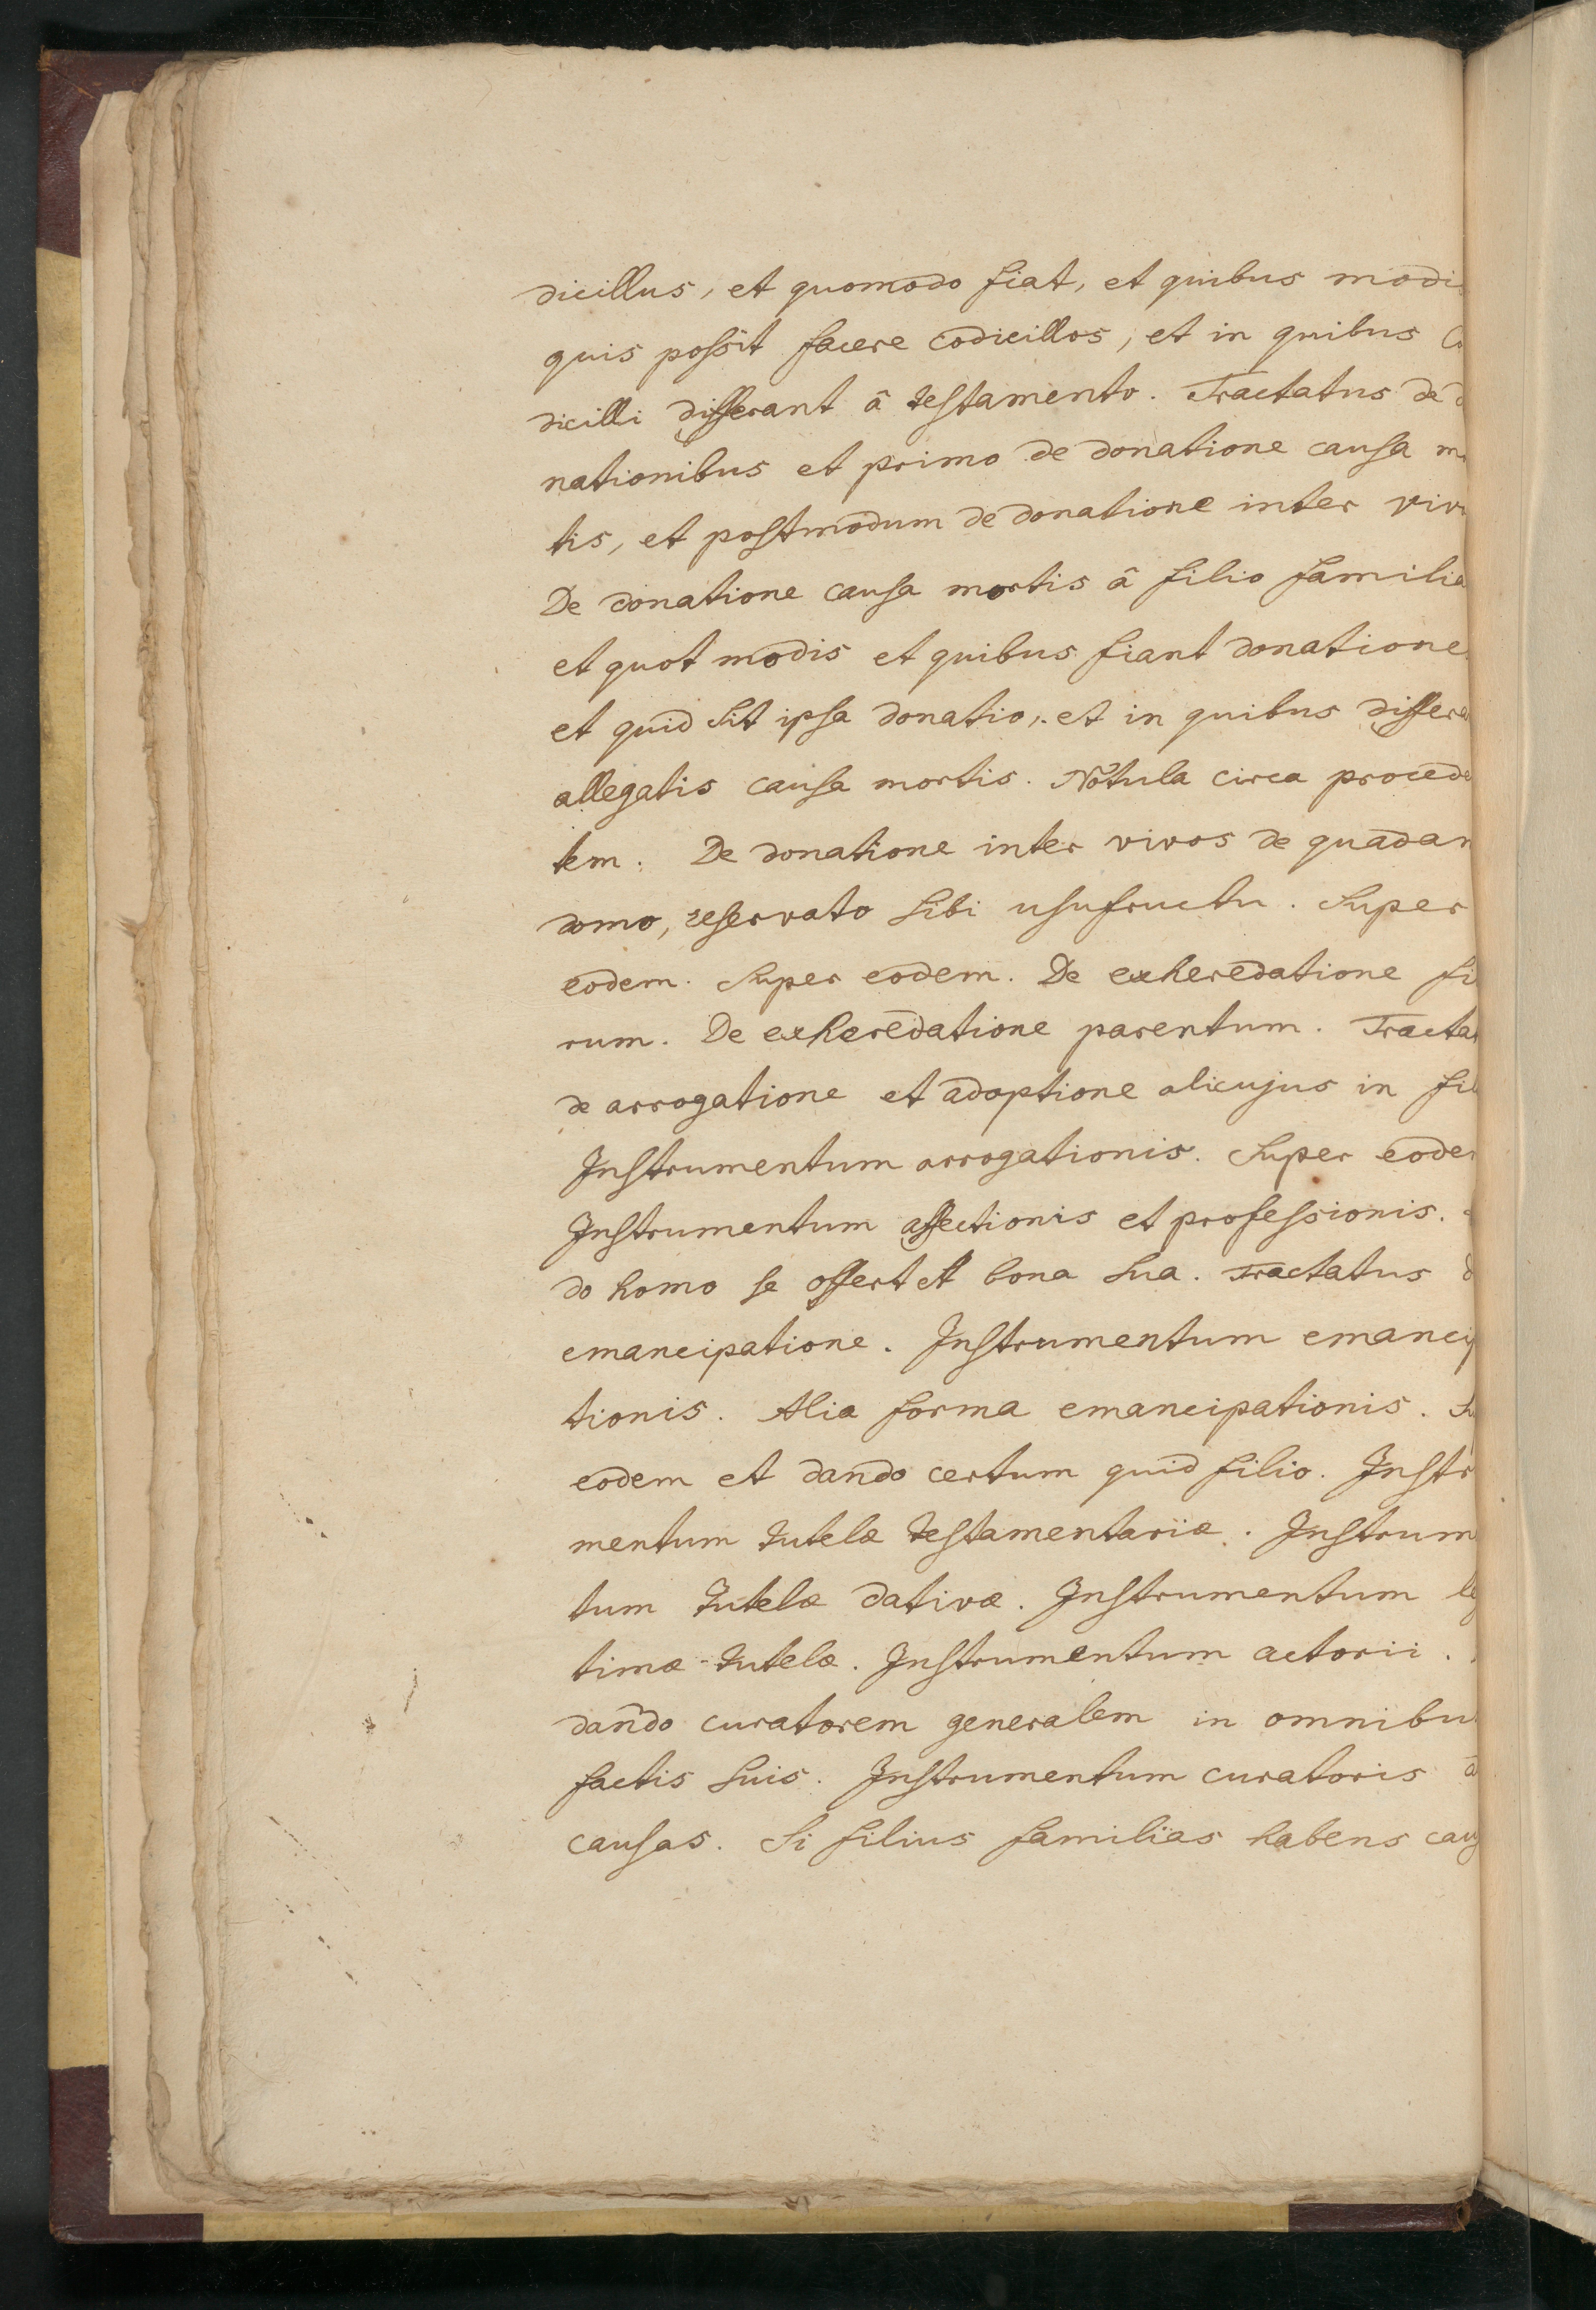 dicillus, et quomodo fiat, et quibus modi
quis possit facere codicillos, et in quibus
dicilli differant â testamento. Tractatus de
nationibus et primo de donatione causa
tis, et postmodum de donatione inter viv
De donatione causa mortis â filio familia
et quot modis et quibus fiant donatione
et quid sit ipsa donatio, et in quibus differa
allegatis causa mortis. Notula circa procede
tem. De donatione inter vivos de quadam
domo, reservato sibi usufructu. Super
eodem. Super eodem. De exheredatione fi
rum. De exheredatione parentum. Tracta
de arrogatione et adoptione alicujus in fil
Instrumentum arrogationis. Super eode
Instrumentum affectionis et professionis.
do homo se offert et bona sua. Tractatus
emancipatione. Instrumentum emancip
tionis. Alia forma emancipationis.
eodem et dando certum quid filio. Instr
mentum tutelæ testamentariæ. Instrum
tum tutelæ dativæ. Instrumentum le
timæ tutelæ. Instrumentum actorii.
dando curatorem generalem in omnibu
factis suis. Instrumentum curatoris a
causas. Si filius familias habens caus